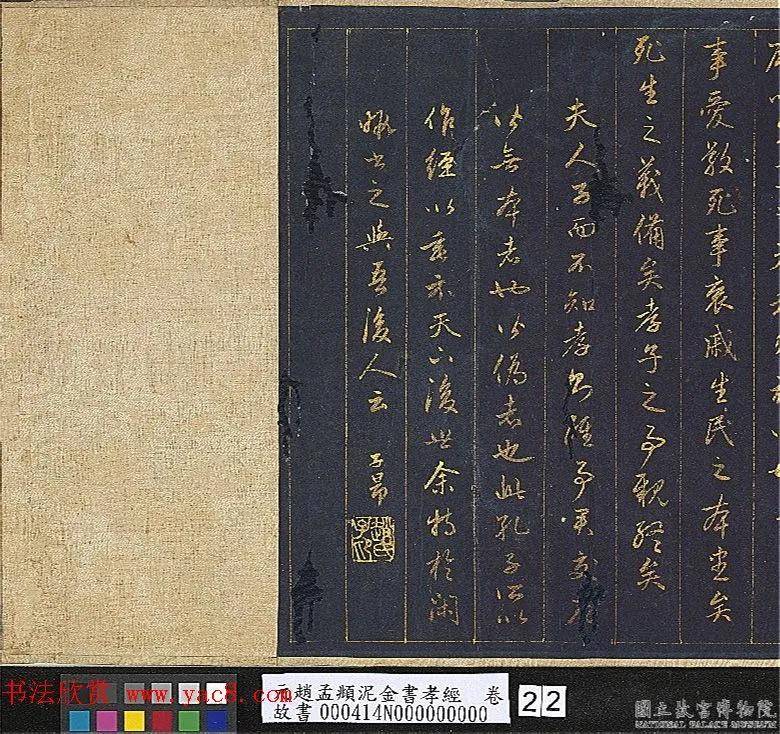 事愛敬死事哀戚生民之本盡矣
死生之義備矣孝子之事親終矣
夫人子而不知孝
後世余特於閑
暇書之與吾後人云 子昂
作經以垂示天下
皆偽者也此孔子所以
趙氏子昂
元趙孟頫泥金書孝經 卷
故書000414N000000000
22
书法欣赏 www.yac8.com
國立故宮博物院
NATIONAL PALACE MUSEUM